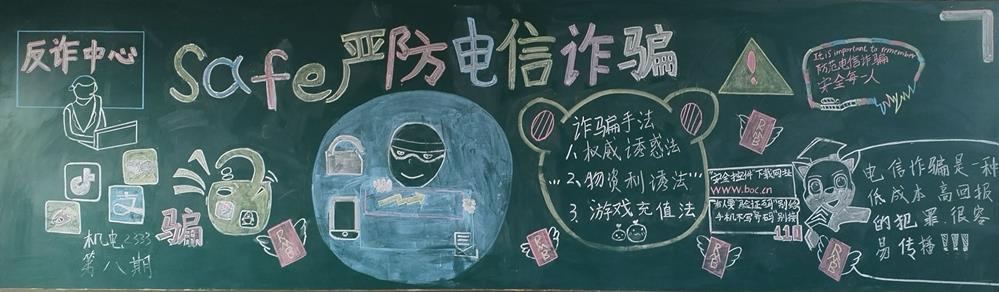 反诈中心
Safe严防电信诈骗
It is important to remember
防范电信诈骗
安全每一人
诈骗手法
1.权威诱惑法
2.物资利诱法
3.游戏充值法
安全控件下载网址
www.boc.cn
有人要"验证码"别给
手机不写号码别接
110
电信诈骗是一种
低成本高回报
的犯罪很容
易传播!!!
骗
机电2333
第八期
RMB
RMB
RMB
RMB
RMB